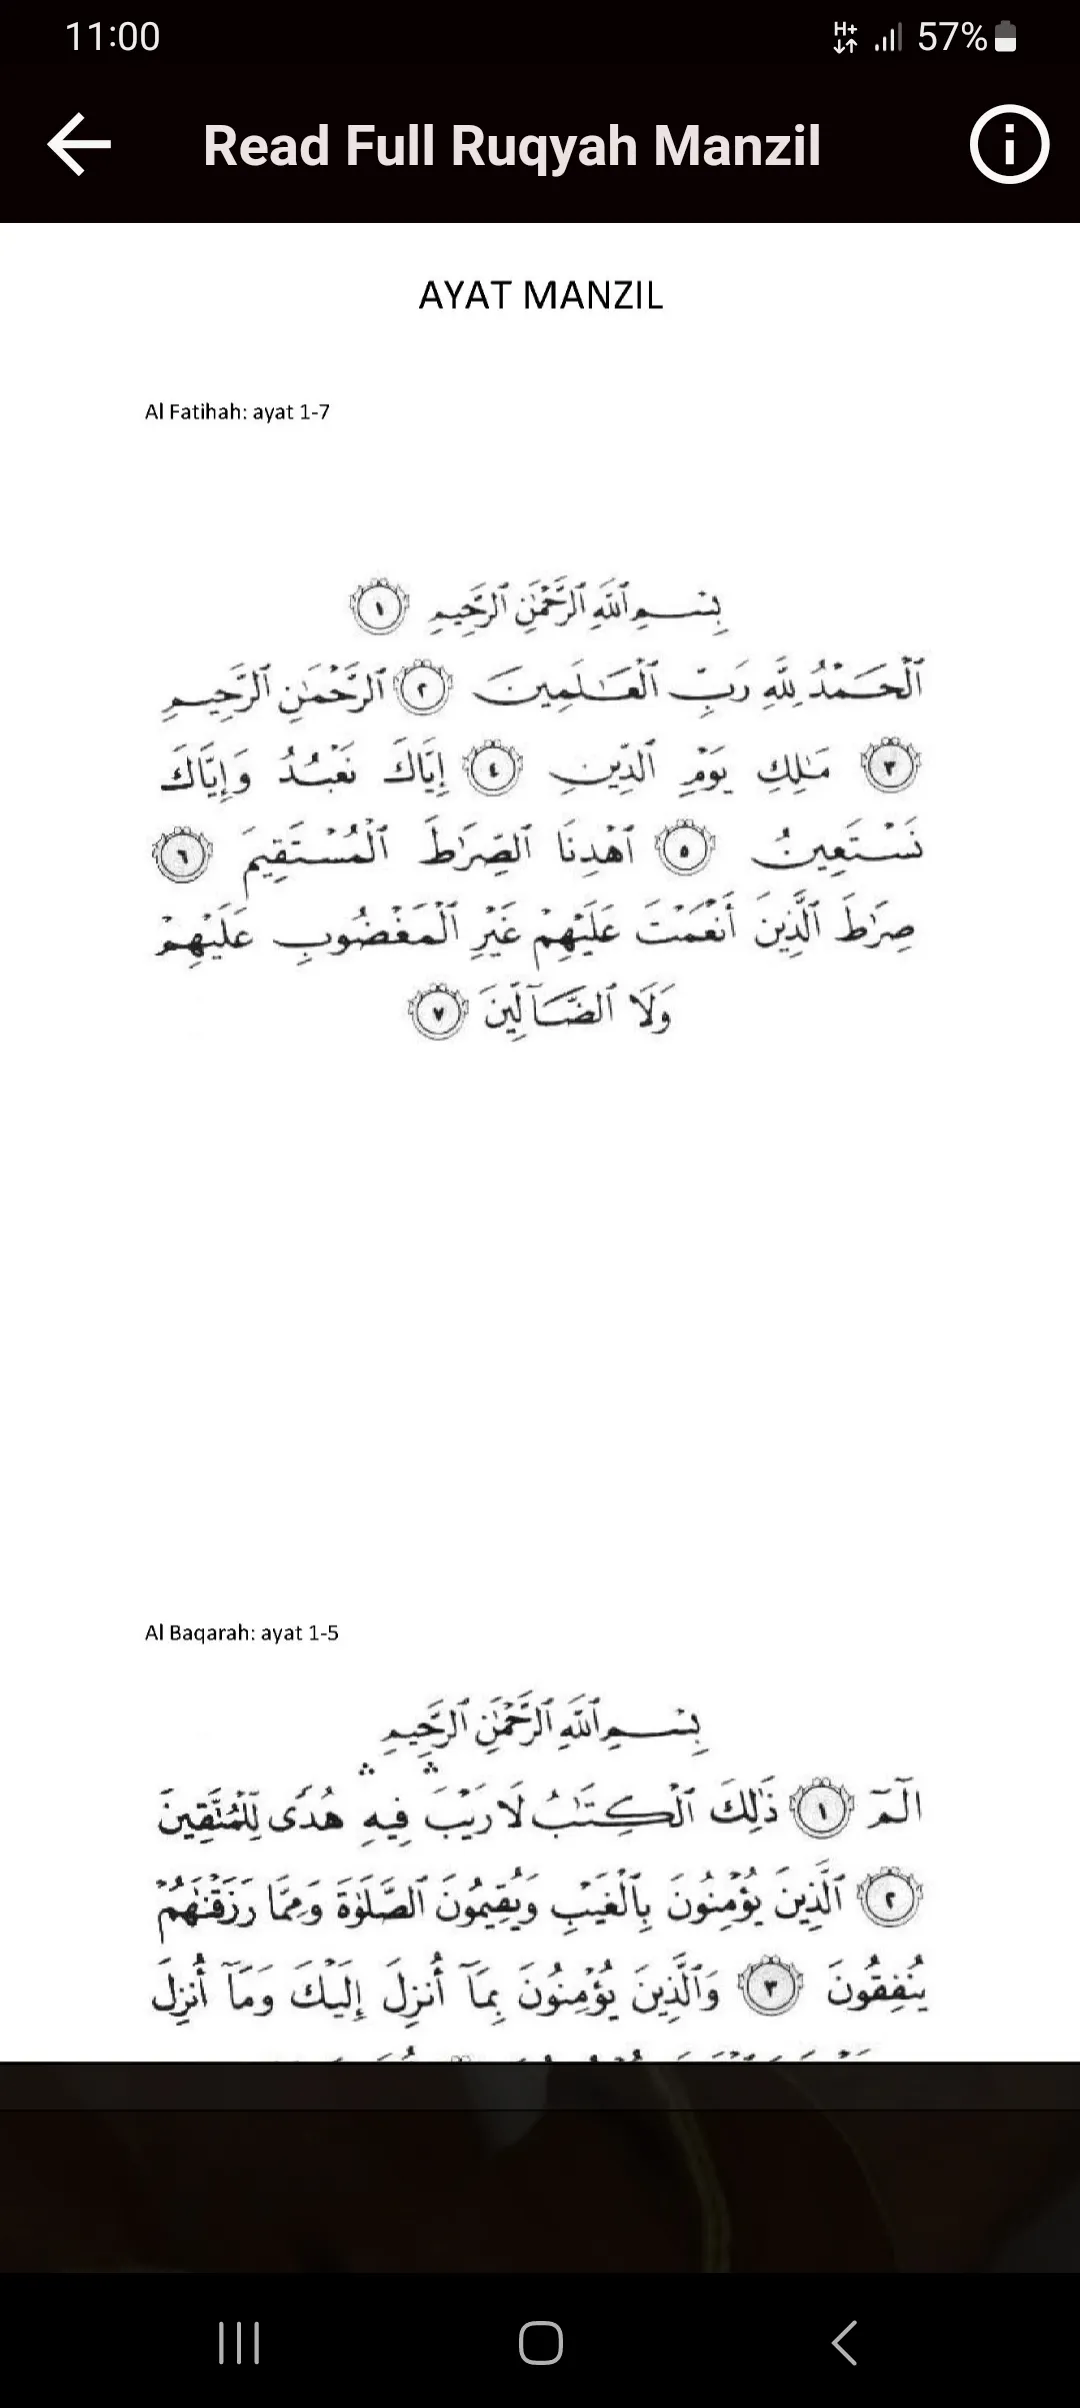 11:00
H+ 57%
Read Full Ruqyah Manzil
AYAT MANZIL
Al Fatihah: ayat 1-7
بِسْمِ ٱللَّهِ ٱلرَّحْمَٰنِ ٱلرَّحِيمِ ١
ٱلْحَمْدُ لِلَّهِ رَبِّ ٱلْعَٰلَمِينَ ٢ ٱلرَّحْمَٰنِ ٱلرَّحِيمِ
٣ مَٰلِكِ يَوْمِ ٱلدِّينِ ٤ إِيَّاكَ نَعْبُدُ وَإِيَّاكَ
نَسْتَعِينُ ٥ ٱهْدِنَا ٱلصِّرَٰطَ ٱلْمُسْتَقِيمَ ٦
صِرَٰطَ ٱلَّذِينَ أَنْعَمْتَ عَلَيْهِمْ غَيْرِ ٱلْمَغْضُوبِ عَلَيْهِمْ
وَلَا ٱلضَّآلِّينَ ٧
Al Baqarah: ayat 1-5
بِسْمِ ٱللَّهِ ٱلرَّحْمَٰنِ ٱلرَّحِيمِ
الٓمٓ ١ ذَٰلِكَ ٱلْكِتَٰبُ لَا رَيْبَ ۛ فِيهِ ۛ هُدًى لِّلْمُتَّقِينَ
٢ ٱلَّذِينَ يُؤْمِنُونَ بِٱلْغَيْبِ وَيُقِيمُونَ ٱلصَّلَوٰةَ وَمِمَّا رَزَقْنَٰهُمْ
يُنفِقُونَ ٣ وَٱلَّذِينَ يُؤْمِنُونَ بِمَآ أُنزِلَ إِلَيْكَ وَمَآ أُنزِلَ